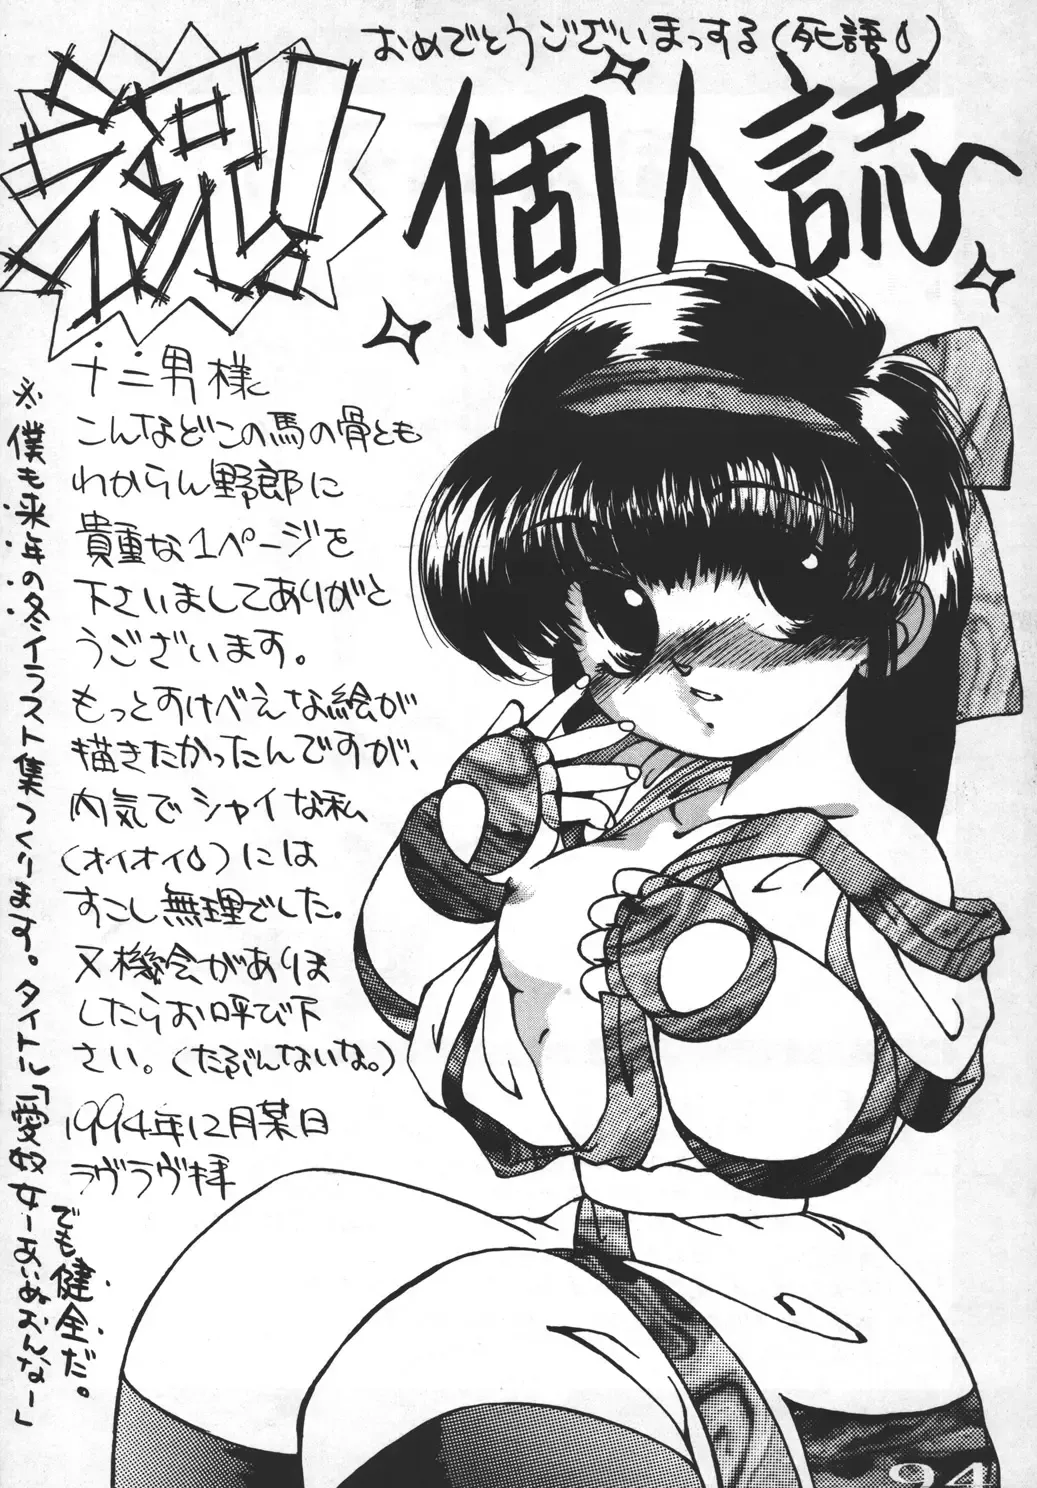 おめでとうございまっする(死語)
祝!
個人誌
十二男様
こんなどこの馬の骨とも
わからん野郎に
貴重な1ページを
下さいましてありがと
うございます。
もっとすけべえな絵が
描きたかったんですが、
内気でシャイな私
(オイオイ)には
すこし無理でした.
又機会がありま
したらお呼び下
さい。(たぶんないな。)
1994年12月某日
ラヴラヴ拝
※僕も来年の冬イラスト集つくります。タイトル「愛奴女ーあいぬおんなー」
でも健全だ。
94